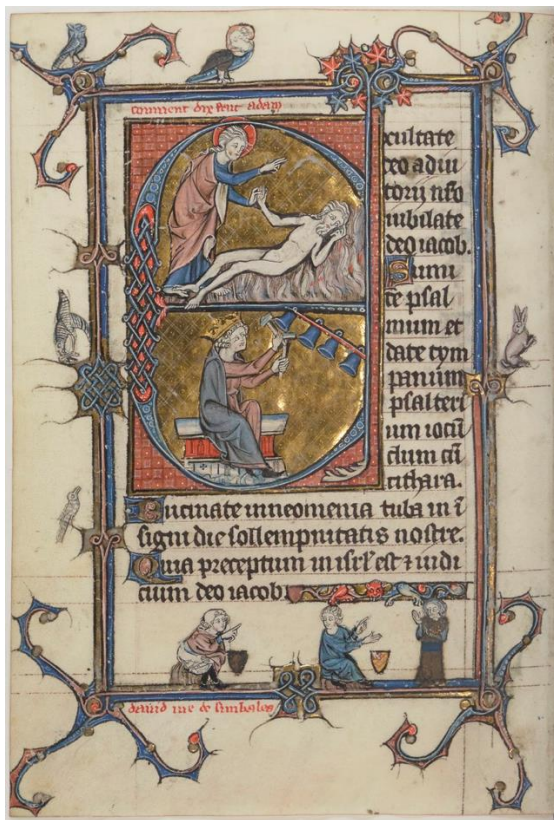 coument dix feut adam
Exultate
deo adiu
tori nr̄o
iubilate
deo iacob.
Sumi
te psal
mum et
date tym
panum
psalteri
um iocū
dum cū
cithara.
Bucinate in neomenia tuba in ī
signi die sollempnitatis nostre.
Quia preceptum in isrl̄ est ⁊ iudi
cium deo iacob.
dauid iue de simbales